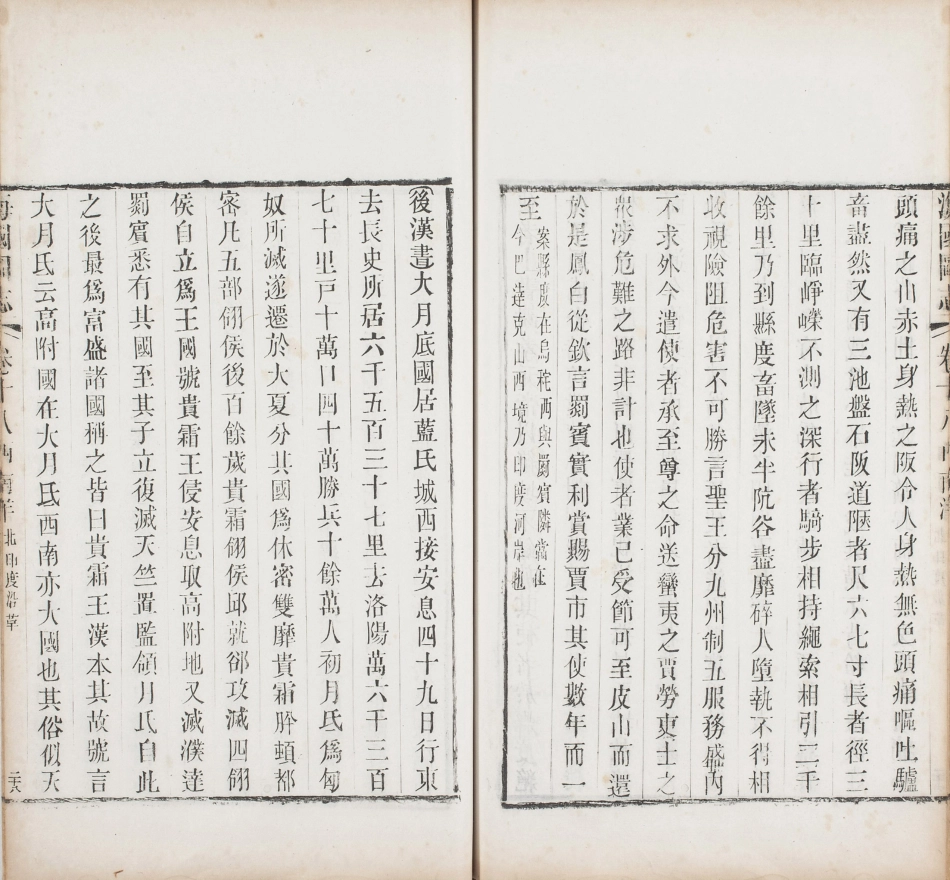 頭痛之山赤土身熱之阪令人身熱無色頭痛嘔吐驢
畜盡然又有三池盤石阪道陿者尺六七寸長者徑三
十里臨崢嶸不測之深行者騎步相持繩索相引二千
餘里乃到縣度畜墜未半阬谷盡靡碎人墮執不得相
收視險阻危害不可勝言聖王分九州制五服務盛內
不求外今遣使者承至尊之命送蠻夷之賈勞吏士之
眾涉危難之路非計也使者業已受節可至皮山而還
於是鳳白從欽言罽賓實利賞賜賈市其使數年而一
至
案縣度在烏秅西與罽賓隣當在
今巴達克山西境乃印度河岸也
後漢書大月底國居藍氏城西接安息四十九日行東
去長史所居六千五百三十七里去洛陽萬六千三百
七十里戸十萬口四十萬勝兵十餘萬人初月氏爲匈
奴所滅遂遷於大夏分其國爲休密雙靡貴霜肸頓都
密凡五部翎侯後百餘歲貴霜翎侯邱就郤攻滅四翎
侯自立爲王國號貴霜王侵安息取高附地又滅濮達
罽賓悉有其國至其子立復滅天竺置監領月氏自此
之後最爲富盛諸國稱之皆曰貴霜王漢本其故號言
大月氏云高附國在大月氏西南亦大國也其俗似天
海國圖志 卷十八 西南洋 北印度沿革